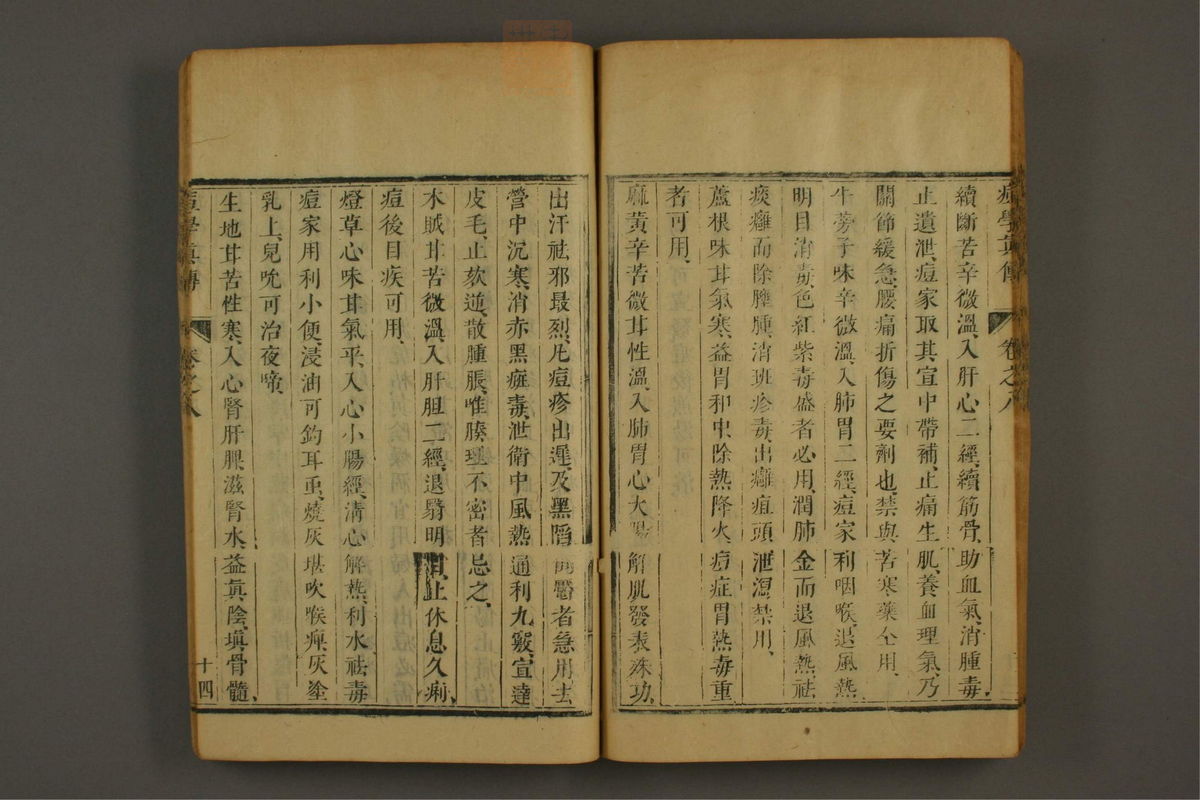 痘學真傳 卷之八
續斷苦辛微溫、入肝心二經、續筋骨、助血氣、消腫毒、
止遺泄、痘家取其宣中帶補、止痛生肌、養血理氣、乃
關節緩急、腰痛折傷之要劑也、禁與苦寒藥仝用、
牛蒡子味辛微溫、入肺胃二經、痘家利咽喉、退風熱、
明目消毒、色紅紫毒盛者必用、潤肺金而退風熱、祛
痰癰而除腫、消班疹毒、出癰疽頭、泄瀉禁用、
蘆根味甘氣寒、益胃和中、除熱降火、痘症胃熱毒重
者可用、
麻黃辛苦微甘性溫、入肺胃心大腸解肌發表殊功、
出汗祛邪最烈、凡痘疹出遲、及黑陷者急用、去
營中沉寒、消赤黑癍毒、泄衛中風熱、通利九竅、宣達
皮毛、止欬逆、散腫脹、唯腠理不密者忌之、
木賊甘苦微溫、入肝胆二經、退翳明目、止休息久痢、
痘後目疾可用、
燈草心味甘氣平、入心小腸經、清心解熱、利水祛毒
痘家用利小便、浸油可釣耳虫、燒灰堪吹喉痺、灰塗
乳上、兒吮可治夜啼、
生地甘苦性寒、入心腎肝脾、滋腎水、益眞陰、塡骨髓、
痘學眞傳 卷之八 十四